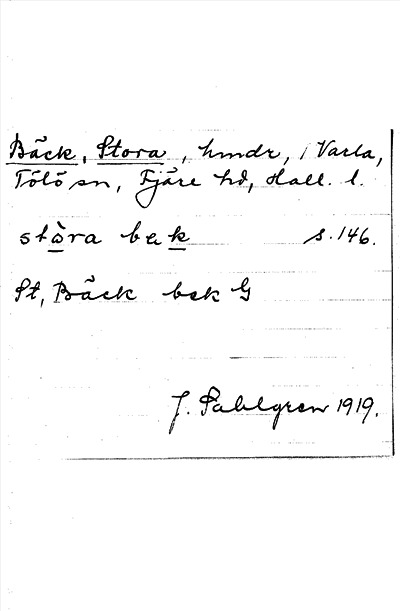 Bäck, Stora, hmdr, i Varla,
Tölö sn, Fjäre hd, Hall. l.
stòra bek s. 146.
St, Bäck bek G
J. Sahlgren 1919.